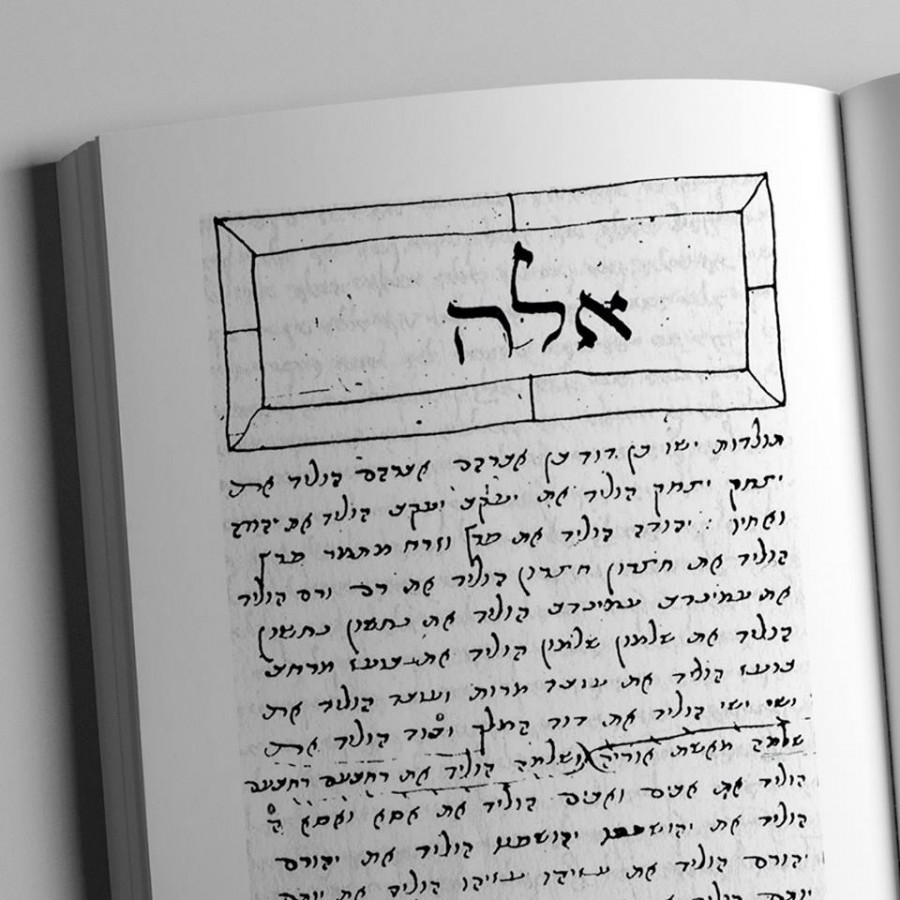 אלה
תולדות ישו בן דוד בן אברהם אברהם הוליד את
יצחק יצחק הוליד את יעקב יעקב הוליד את יהודה
ואחיו : יהודה הוליד את פרץ וזרח מתמר פרץ
הוליד את חצרון חצרון הוליד את רם ורם הוליד
את עמינדב עמינדב הוליד את נחשון נחשון
הוליד את שלמון שלמון הוליד את בועז מרחב
בועז הוליד את עובד מרות ועובד הוליד את
ישי הוליד את דוד המלך ודוד הוליד את
שלמה מאשת אוריה ושלמה הוליד את רחבעם רחבעם
הוליד את אביה ואביה הוליד את אסא ואסא ה
הוליד את יהושפט יהושפט הוליד את יהורם
יהורם הוליד את עזיהו עזיהו הוליד את יותם